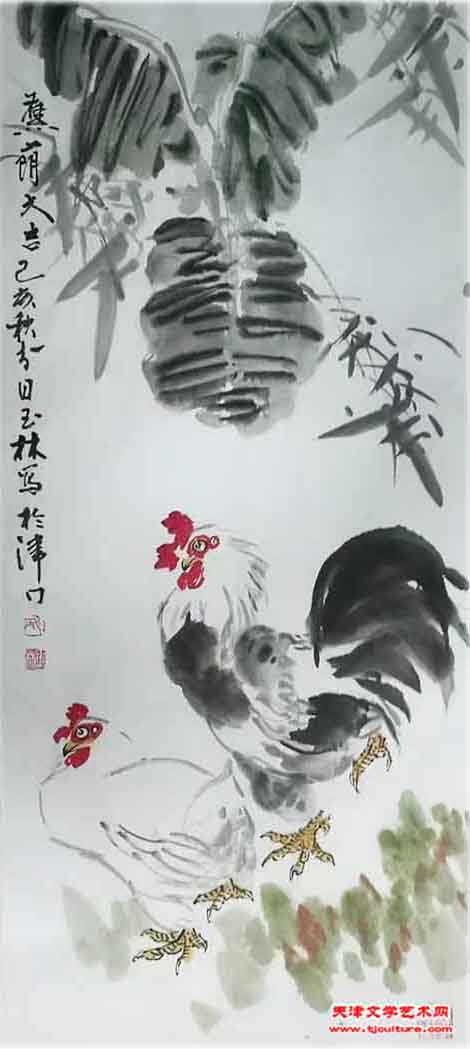 蕉荫大吉己亥秋分日玉林写於津门
天津文学艺术网
www.tjculture.com